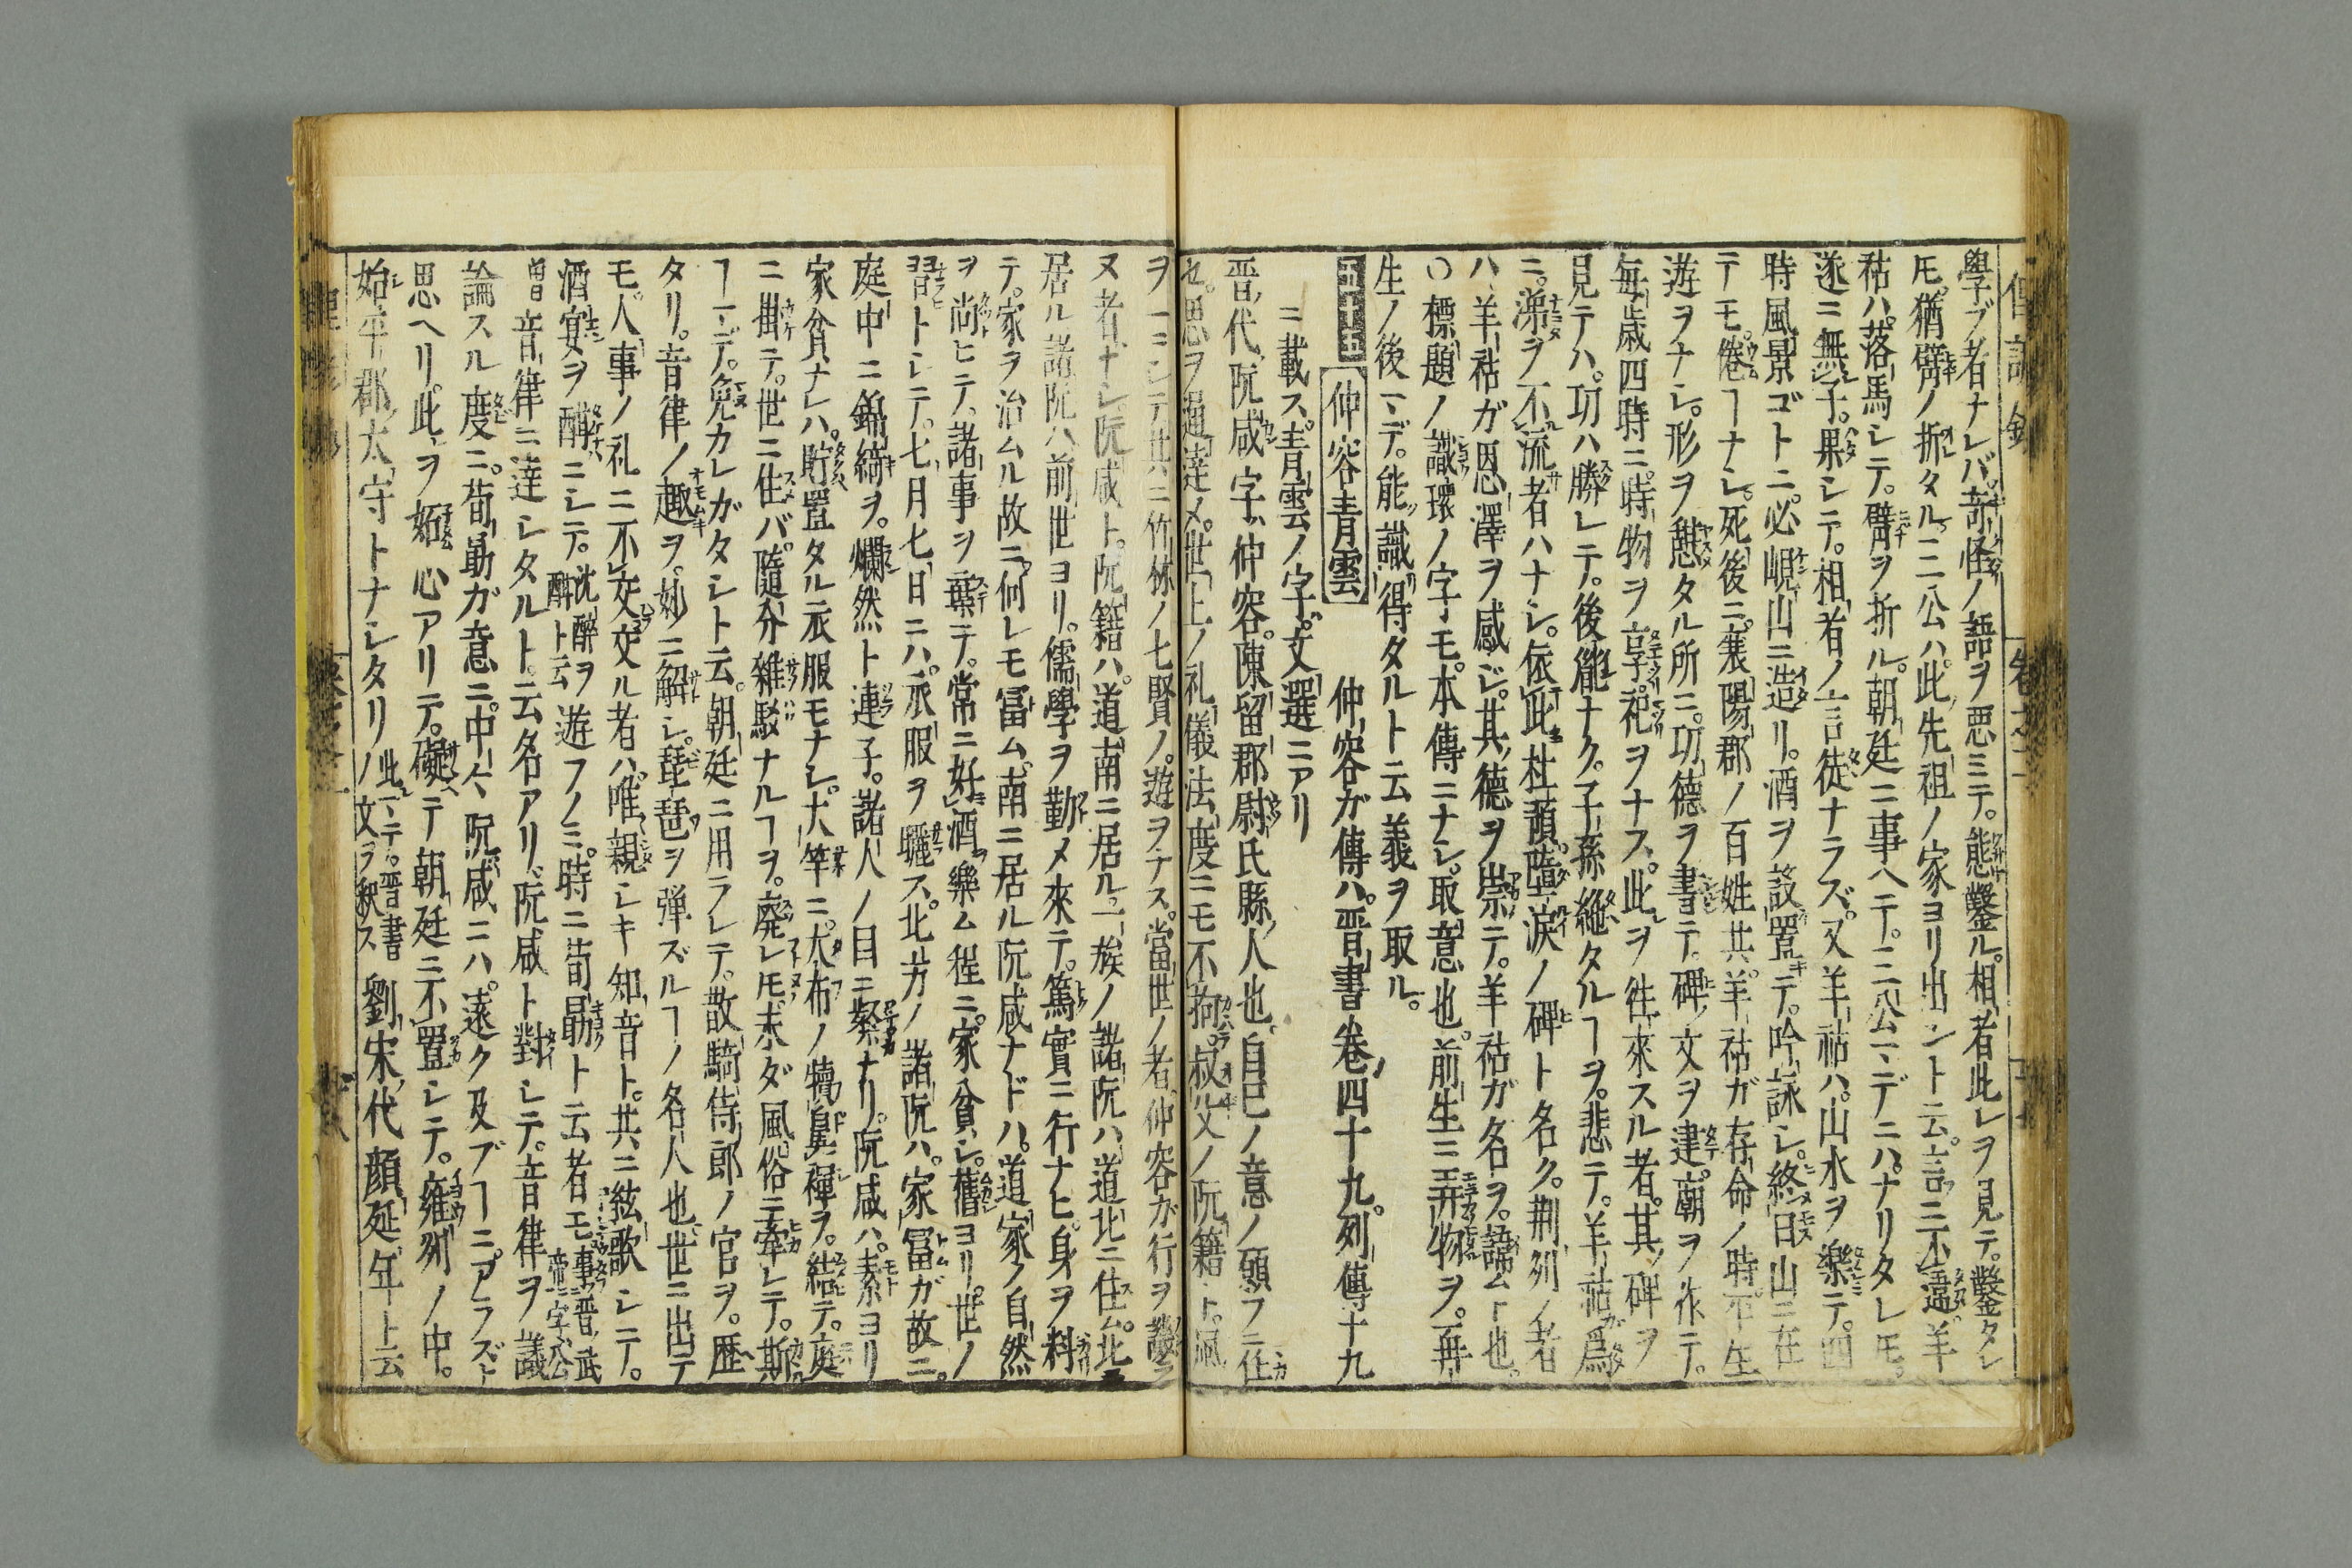 學ブ者ナレバ奇怪ノ語ヲ悪ミテ。態鑿ル。相者此レヲ見テ。鑿タレ
𪜈。猶臂ノ折タル三公ハ。此先祖ノ家ヨリ出ント云。言ニ不違。羊
祜ハ。落馬レテ。臂ヲ折ル。朝廷ニ事ヘテ。三公マデニハナリタレ𪜈。
遂ニ無子。果シテ。相者ノ言徒ナラズ。又羊祜ハ。山水ヲ樂テ。四
時風景ゴトニ。必峴山ニ造リ。酒ヲ設置テ。吟詠シ。終日山ニ在
テモ。倦ヿナシ。死後ニ。襄陽郡ノ百姓其羊祜ガ存命ノ時平生
遊ヲナシ。形ヲ憩タル所ニ。功德ヲ書テ。碑文ヲ建。廟ヲ作テ。
每歳四時ニ。時物ヲ享祀ヲナス。此ヲ徃來スル者。其碑ヲ
見テハ。功ハ勝レテ。後胤ナク。子孫絶タルヿヲ。悲テ。羊祜爲
ニ。涕ヲ不流者ハナシ。依此杜預墮涙ノ碑ト名ク。荆列ノ者
ハ羊祜ガ恩澤ヲ感ジ。其德ヲ崇テ。羊祜ガ名ヲ。諱ムト也。
○標題ノ識環ノ字モ。本傳ニナシ。取意也。前生ニ弄物ヲ。再
生ノ後マデ。能識得タルト云義ヲ取ル。
五十五 仲容青雲 仲容ガ傳ハ。晋書卷四十九。列傳十九
ニ載ス。青雲ノ字。文選ニアリ
晋代阮咸字仲容。陳留郡尉氏縣人也。自己ノ意ノ願フニ任
セ。思ヲ通達メ。世上ノ礼儀法度ニモ不拘。叔父ノ阮籍ト。
ヲ一ニシテ共ニ竹林ノ七賢ノ。遊ヲナス。當世ノ者。仲容ガ行ヲ
ヌ者ナシ。阮咸ト。阮籍ハ。道南ニ居ル。一族ノ諸阮ハ道北ニ住ム。北ニ
居ル諸阮ハ前世ヨリ。儒學ヲ勤メ來テ。篤實ニ行ナヒ。身ヲ料
テ。家ヲ治ムル故ニ。何レモ冨ム。南ニ居ル阮咸ナドハ。道家ノ自然
ヲ尚ヒテ。諸事ヲ棄テ。常ニ好酒樂ム程ニ。家貧シ。舊ヨリ。世ノ
習トレテ。七月七日ニハ。衣服ヲ曬ス。北方ノ諸阮ハ。家冨ガ故ニ。
庭中ニ錦綺ヲ。爛然ト連子。諸人ノ目ニ繁ナリ。阮咸ハ。素ヨリ
家貧ナレハ。貯置タル衣服モナシ。大竿ニ。大布ノ犢鼻褌ヲ。結テ。庭
ニ掛テ。世ニ住バ。隨分雜駁ナルヿヲ。廢レ𪜈。未ダ風俗ニ牽レテ。斯
ヿマデ。免カレガタシト云。朝廷ニ用ラレテ。散騎侍郎ノ官ヲ。歷
タリ。音律ノ趣ヲ。妙ニ解シ。琵琶ヲ弾ズルヿノ名人也。世ニ出テ
モ。人事ノ礼ニ不交。交ル者ハ。唯親シキ知音ト。共ニ絃歌シテ。
酒宴ヲ酣ニシテ。沈醉ヲ酣ト云遊フノミ。時ニ荀勗ト云者モ事晋武帝ニ字公
曾音律ニ達シタルト。云名アリ。阮咸ト對シテ。音律ヲ議
論スル度ニ。荀勗ガ意ニ。中々阮咸ニハ。遠ク及ブヿニアラズト
思ヘリ。此ヲ妬心アリテ。礙テ朝廷ニ不置レテ。雍州ノ中。
始平郡太守トナシタリ此マテ。晋書ノ文ヲ釈ス劉宋代顔延年ト云